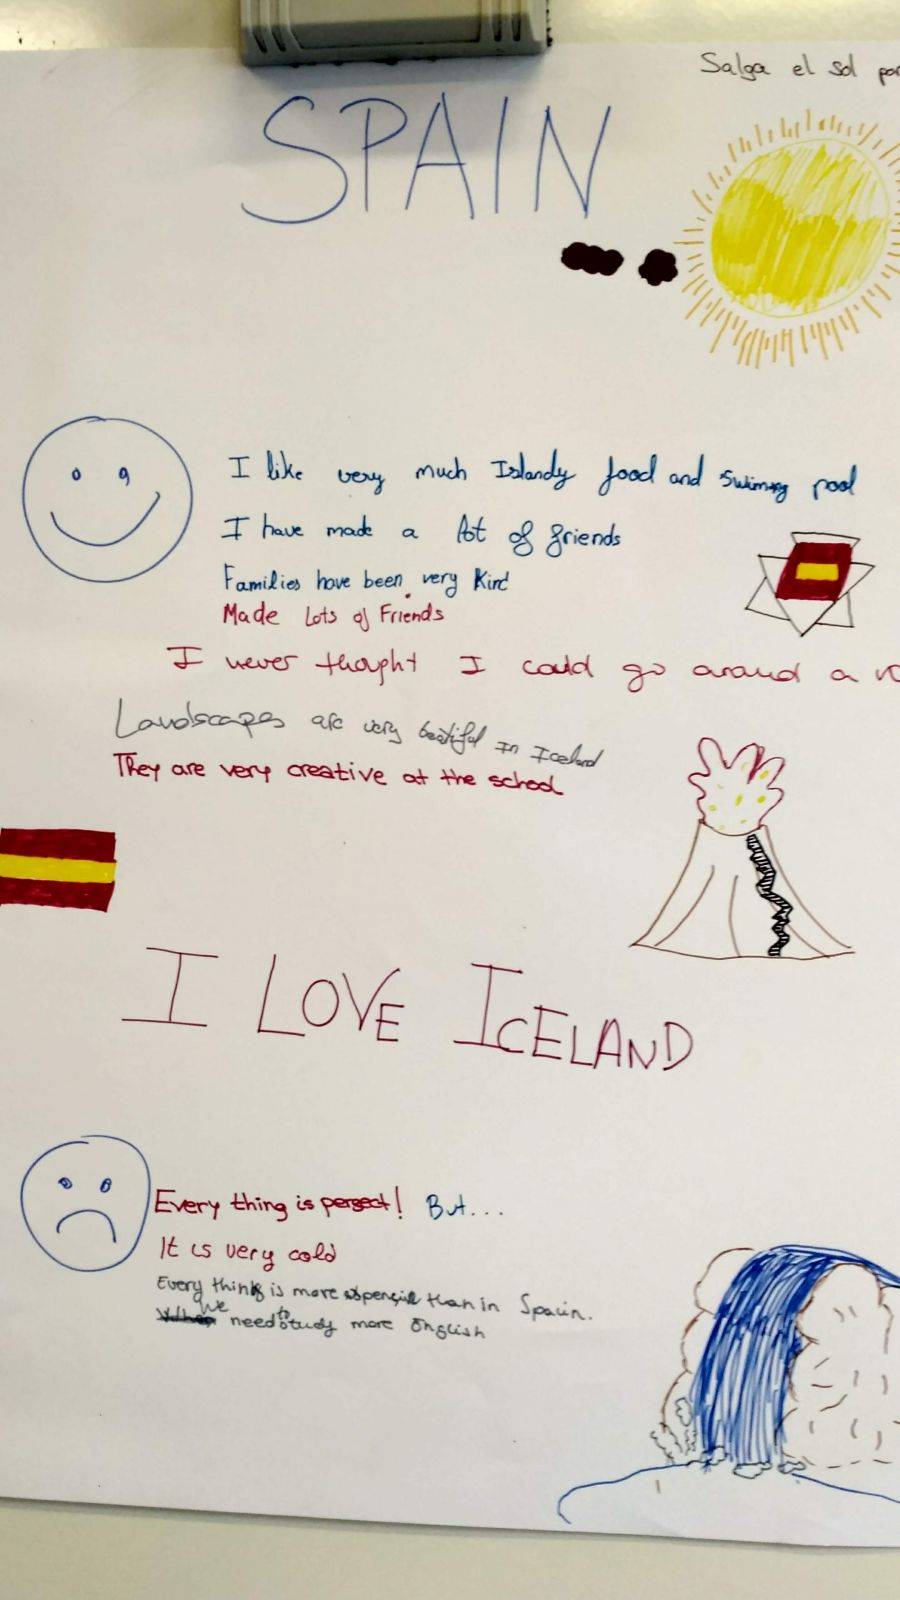 Salga el sol por
SPAIN
I like very much Islandy food and swiming pool
I have made a lot of friends
Families have been very kind
Made Lots of Friends
I never thought I could go around a
Landscapes are very beatiful in Iceland
They are very creative at the school
I LOVE ICELAND
Every thing is persect! But...
It is very cold
Every think is more expensive than in Spain.
we need to study more English